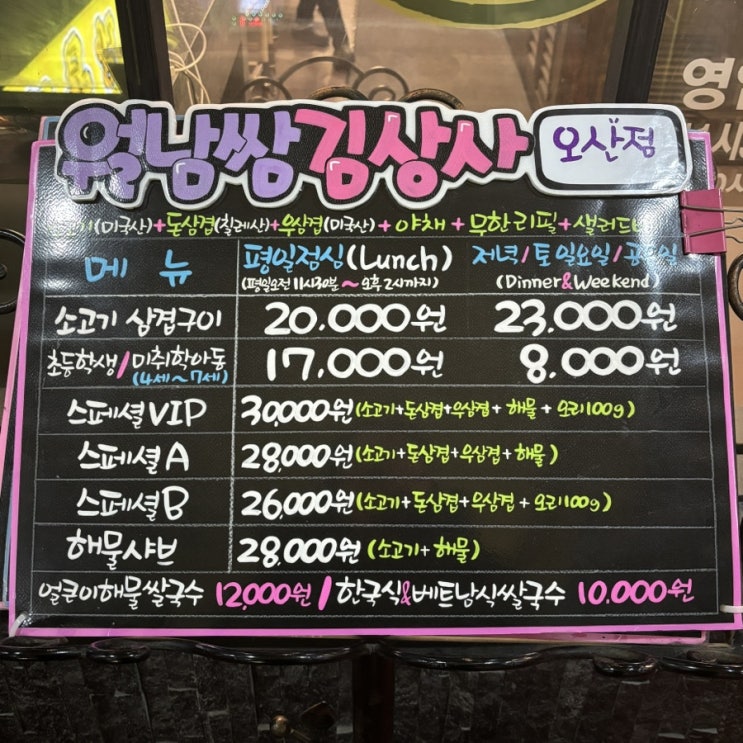 월남쌈김상사 오산점
(미국산)+돈삼겹(칠레산)+우삼겹(미국산)+야채+무한리필+샐러드
메뉴 평일점심(Lunch) 저녁/토일요일/공
(평일오전 11시30분~오후 2시까지) (Dinner&Weekend)
소고기 삼겹구이 20.000원 23.000원
초등학생/미취학아동 17.000원 8.000원
(4세~7세)
스페셜VIP 30,000원(소고기+돈삼겹+우삼겹+해물+오리100g)
스페셜A 28,000원(소고기+돈삼겹+우삼겹+해물)
스페셜B 26,000원(소고기+돈삼겹+우삼겹+오리100g)
해물샤브 28.000원(소고기+해물)
얼큰이해물쌀국수 12,000원/한국식&베트남식쌀국수 10.000원
영
시